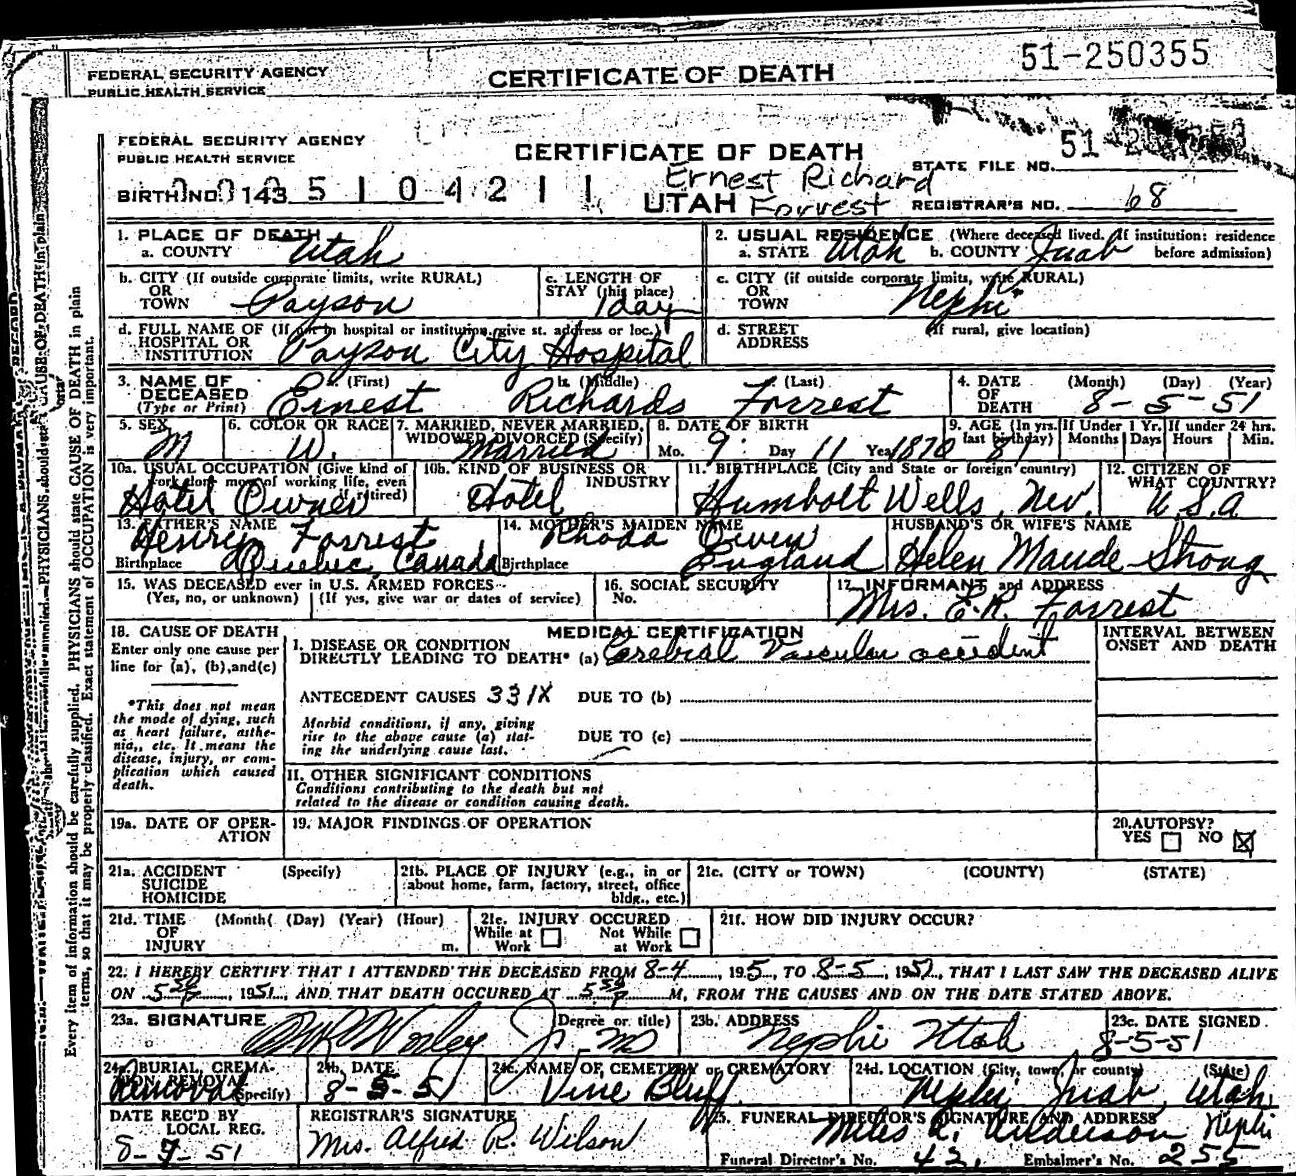 51-250355
FEDERAL SECURITY AGENCY
PUBLIC HEALTH SERVICE
CERTIFICATE OF DEATH
FEDERAL SECURITY AGENCY
PUBLIC HEALTH SERVICE
CERTIFICATE OF DEATH
STATE FILE NO. 51
BIRTH NO. 143 5 1 0 4 2 1 1
Ernest Richard
UTAH Forrest
REGISTRAR'S NO. 68
1. PLACE OF DEATH
a. COUNTY Utah
2. USUAL RESIDENCE (Where deceased lived. If institution: residence
a. STATE Utah b. COUNTY Juab before admission)
b. CITY (If outside corporate limits, write RURAL)
OR
TOWN Payson
c. LENGTH OF
STAY (this place) 1 day
c. CITY (if outside corporate limits, write RURAL)
OR
TOWN Nephi
d. FULL NAME OF (If not in hospital or institution, give st. address or loc.)
HOSPITAL OR
INSTITUTION Payson City Hospital
d. STREET (If rural, give location)
ADDRESS
3. NAME OF DECEASED (Type or Print)
a. (First) b. (Middle) c. (Last)
Ernest Richards Forrest
4. DATE OF DEATH (Month) (Day) (Year)
8-5-51
5. SEX M
6. COLOR OR RACE W.
7. MARRIED, NEVER MARRIED,
WIDOWED, DIVORCED (Specify)
Married
8. DATE OF BIRTH
Mo. 9 Day 11 Year 1870
9. AGE (In yrs. last birthday) 81
If Under 1 Yr. Months Days
If under 24 hrs. Hours Min.
10a. USUAL OCCUPATION (Give kind of
work done most of working life, even
if retired)
Hotel Owner
10b. KIND OF BUSINESS OR
INDUSTRY
Hotel
11. BIRTHPLACE (City and State or foreign country)
Humbolt Wells, Nev.
12. CITIZEN OF
WHAT COUNTRY?
U.S.A
13. FATHER'S NAME
Henry Forrest
Birthplace Quebec, Canada
14. MOTHER'S MAIDEN NAME
Rhoda Owen
Birthplace England
HUSBAND'S OR WIFE'S NAME
Helen Maude Strong
15. WAS DECEASED ever in U.S. ARMED FORCES
(Yes, no, or unknown) (If yes, give war or dates of service)
16. SOCIAL SECURITY
No.
17. INFORMANT and ADDRESS
Mrs. E.R. Forrest
18. CAUSE OF DEATH
Enter only one cause per
line for (a), (b), and (c)
*This does not mean
the mode of dying, such
as heart failure, asthe-
nia, etc. It means the
disease, injury, or com-
plication which caused
death.
MEDICAL CERTIFICATION
I. DISEASE OR CONDITION
DIRECTLY LEADING TO DEATH* (a) Cerebral Vascular accident
ANTECEDENT CAUSES 331X DUE TO (b)
Morbid conditions, if any, giving
rise to the above cause (a) stat-
ing the underlying cause last.
DUE TO (c)
II. OTHER SIGNIFICANT CONDITIONS
Conditions contributing to the death but not
related to the disease or condition causing death.
INTERVAL BETWEEN
ONSET AND DEATH
19a. DATE OF OPER-
ATION
19. MAJOR FINDINGS OF OPERATION
20. AUTOPSY?
YES NO
21a. ACCIDENT (Specify)
SUICIDE
HOMICIDE
21b. PLACE OF INJURY (e.g., in or
about home, farm, factory, street, office
bldg., etc.)
21c. (CITY or TOWN) (COUNTY) (STATE)
21d. TIME (Month) (Day) (Year) (Hour)
OF
INJURY m.
21e. INJURY OCCURED
While at Work Not While at Work
21f. HOW DID INJURY OCCUR?
22. I HEREBY CERTIFY THAT I ATTENDED THE DECEASED FROM 8-4, 195, TO 8-5, 1951, THAT I LAST SAW THE DECEASED ALIVE
ON 5, 1951, AND THAT DEATH OCCURED AT 5 P M, FROM THE CAUSES AND ON THE DATE STATED ABOVE.
23a. SIGNATURE (Degree or title)
Worley Jr. MD
23b. ADDRESS
Nephi Utah
23c. DATE SIGNED
8-5-51
24a. BURIAL, CREMA-
TION, REMOVAL (Specify)
Removal
24b. DATE
8-5-51
24c. NAME OF CEMETERY or CREMATORY
Vine Bluff
24d. LOCATION (City, town, or county) (State)
Nephi Juab Utah
DATE REC'D BY
LOCAL REG.
8-7-51
REGISTRAR'S SIGNATURE
Mrs. Alfred R. Wilson
25. FUNERAL DIRECTOR'S SIGNATURE AND ADDRESS
Miles L. Anderson Nephi
Funeral Director's No. 42. Embalmer's No. 255
Every item of information should be carefully supplied. PHYSICIANS should state CAUSE OF DEATH in plain
terms, so that it may be properly classified. Exact statement of OCCUPATION is very important.